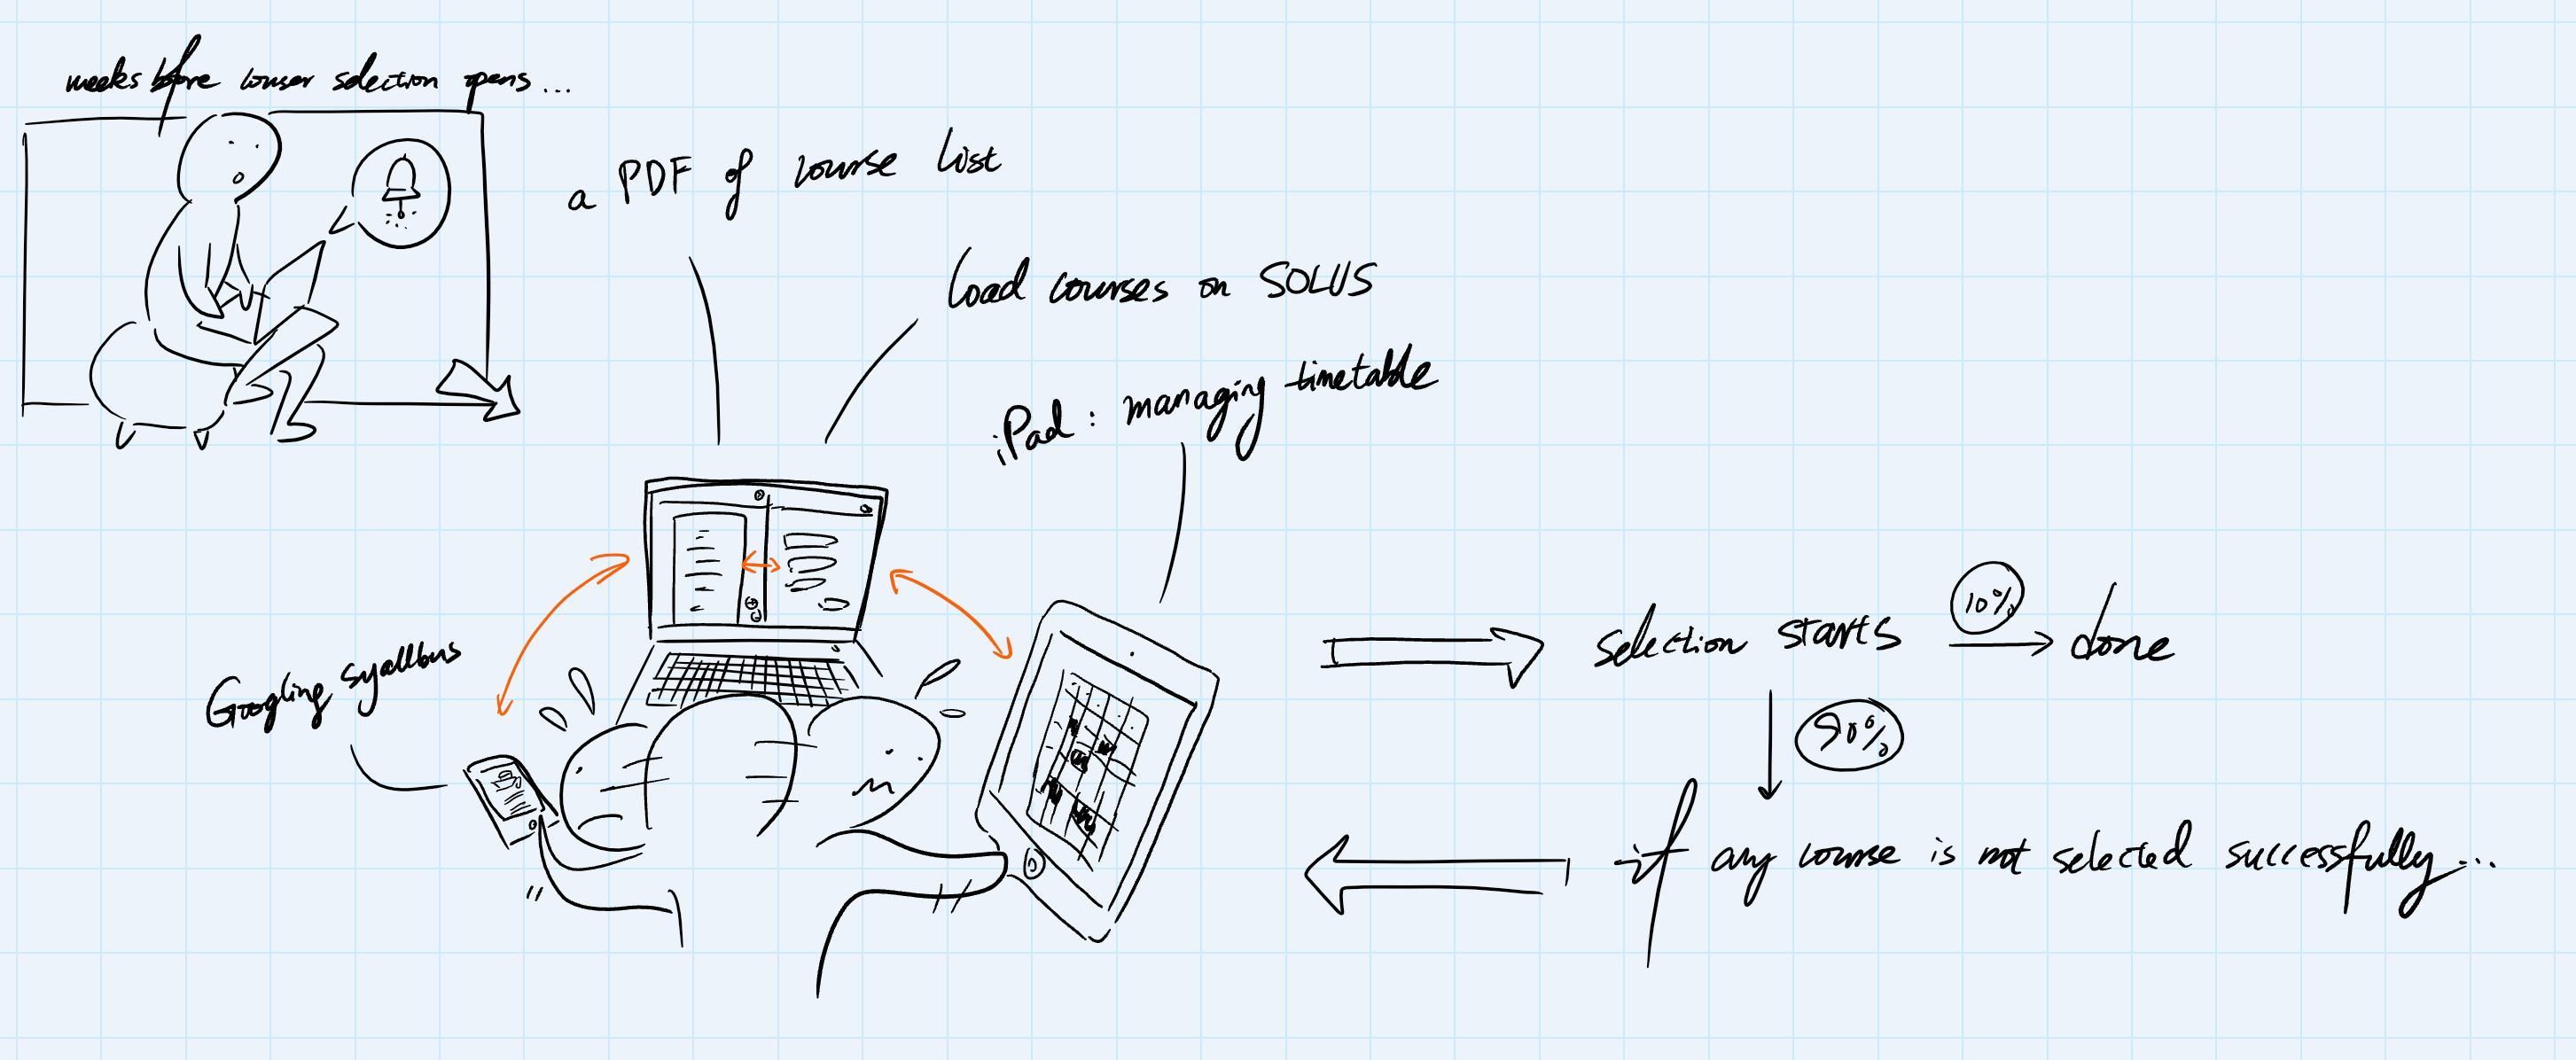 weeks before courser selection opens...
a PDF of course list
load courses on SOLUS
iPad: managing timetable
Googling syallbus
selection starts 10% done
90%
if any course is not selected successfully...